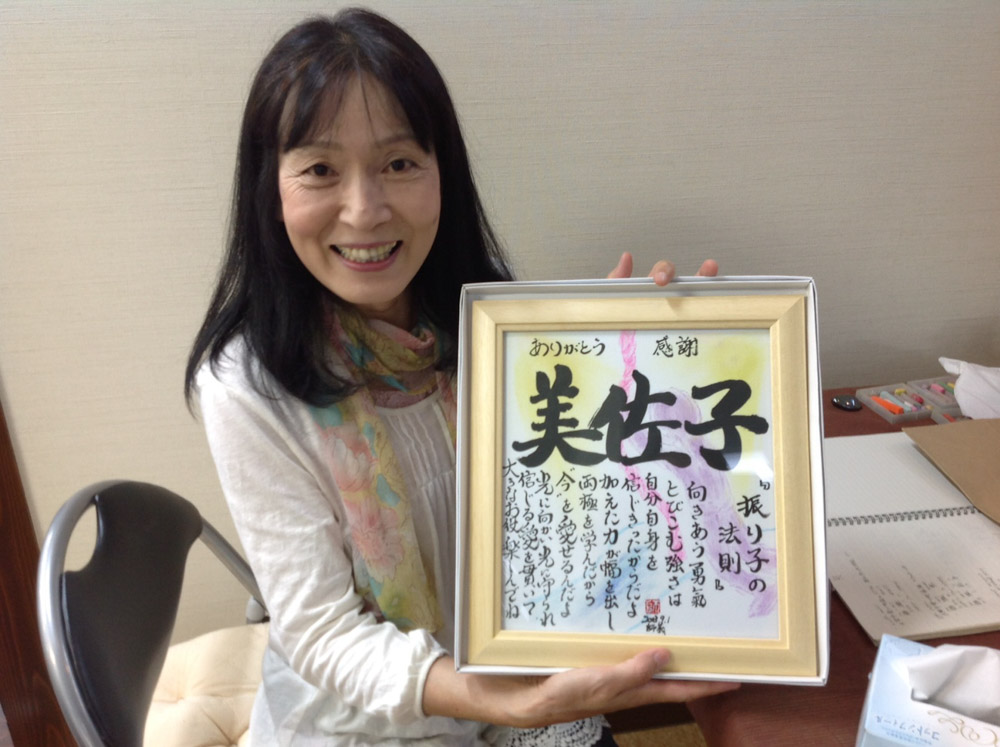 ありがとう　感謝
美佐子
『振り子の
法則』
向きあう勇氣
とびこむ強さは
自分自身を
信じきったからだよ
加えた力が幅を出し
両極を学んだから
“今”を愛せるんだよ
光に向かい光に守られ
信じる愛を貫いて
大きなお役楽しんでね